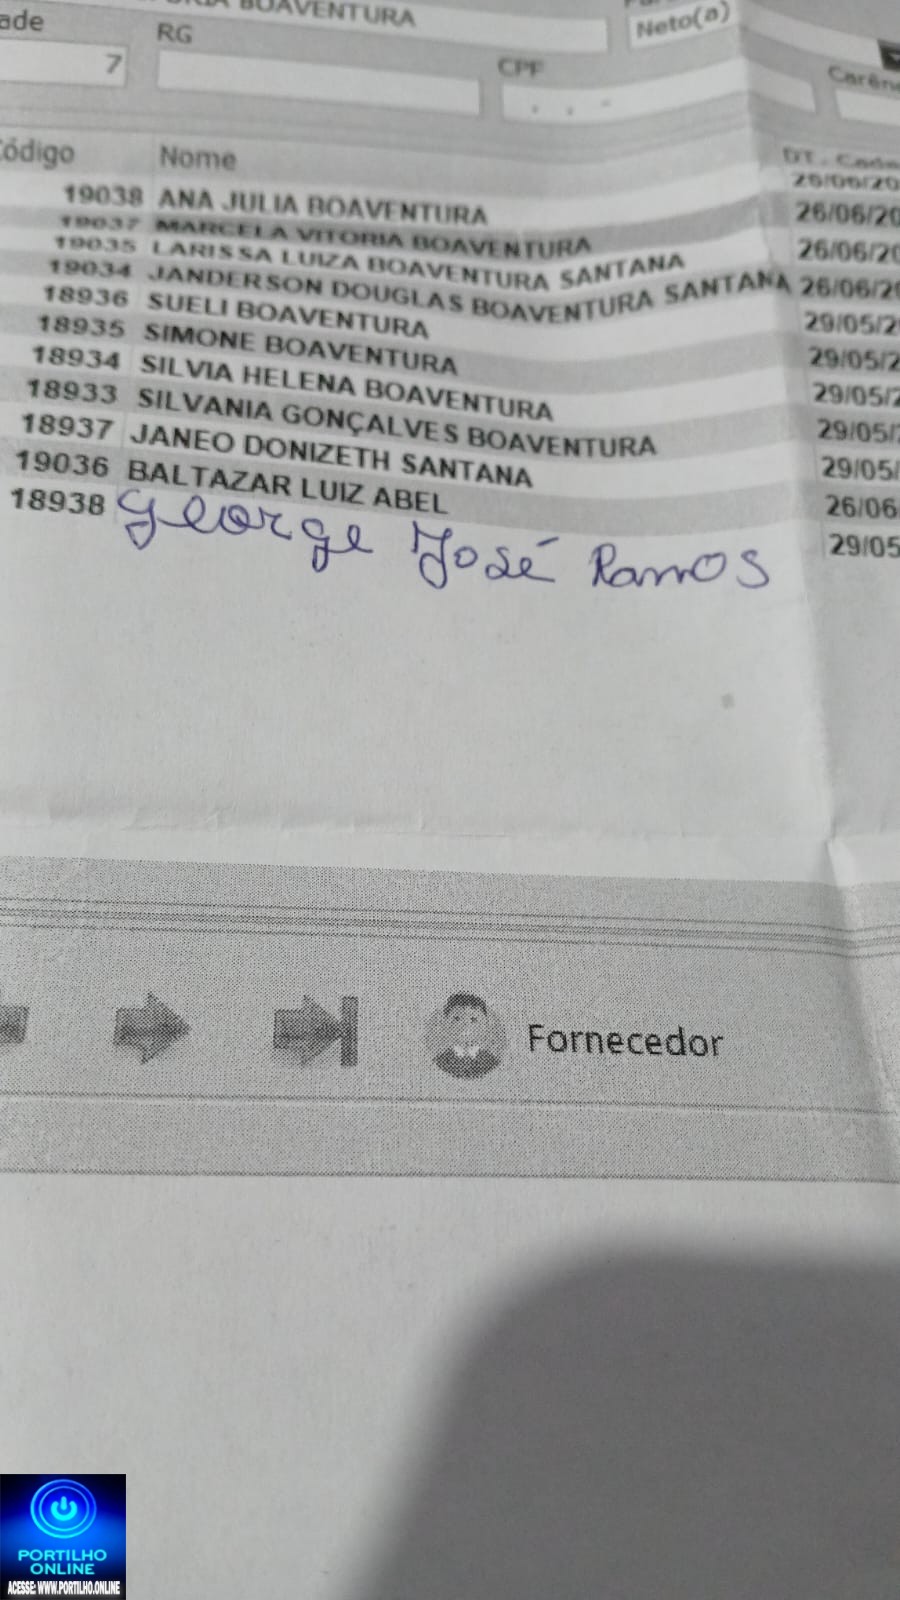 BOAVENTURA
Neto(a)
ade RG CPF Carên
7 . . -
Código Nome DT. Cada
26/06/20
19038 ANA JULIA BOAVENTURA 26/06/20
19037 MARCELA VITORIA BOAVENTURA 26/06/20
19035 LARISSA LUIZA BOAVENTURA SANTANA 26/06/20
19034 JANDERSON DOUGLAS BOAVENTURA SANTANA 29/05/2
18936 SUELI BOAVENTURA 29/05/2
18935 SIMONE BOAVENTURA 29/05/2
18934 SILVIA HELENA BOAVENTURA 29/05/
18933 SILVANIA GONÇALVES BOAVENTURA 29/05/
18937 JANEO DONIZETH SANTANA 26/06
19036 BALTAZAR LUIZ ABEL 29/05
18938 George José Ramos
Fornecedor
PORTILHO
ONLINE
ACESSE: WWW.PORTILHO.ONLINE